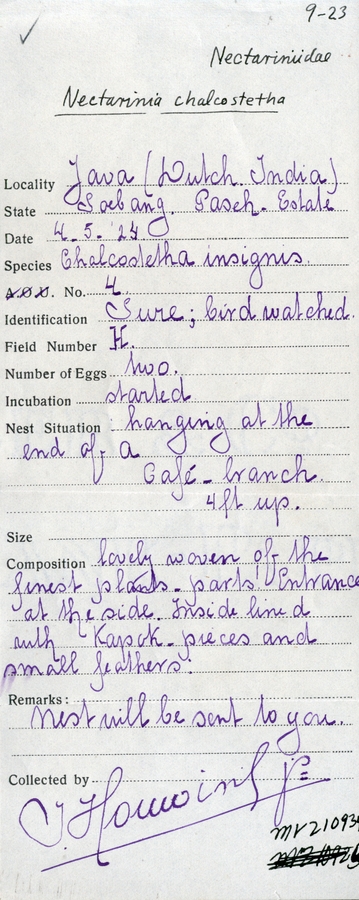 9-23
Nectariniidae
Nectarinia chalcostetha
Locality Java (Dutch. India)
State Soebang. Paseh. Estate
Date 4.5.'24
Species Chalcostetha insignis.
A.O.U. No. 4.
Identification Sure; bird watched.
Field Number H.
Number of Eggs two.
Incubation started
Nest Situation hanging at the
end of a
Café-branch.
4 ft up.
Size
Composition lovely woven of the
finest plants-parts! Entrance
at the side. Inside lined
with Kapok-pieces and
small feathers.
Remarks:
Nest will be sent to you.
Collected by